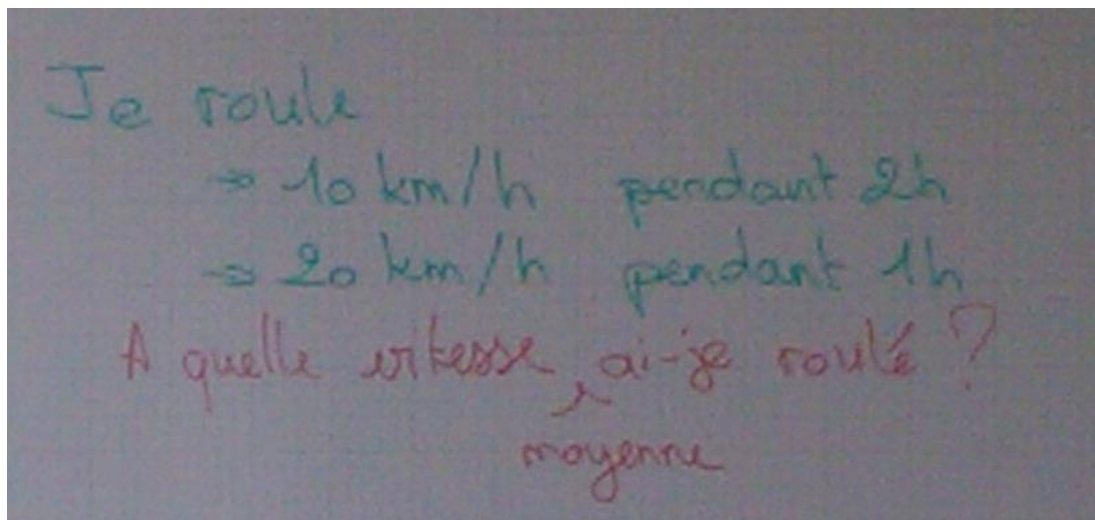 Je roule
→ 10 km/h pendant 2h
→ 20 km/h pendant 1h
A quelle vitesse moyenne ai-je roulé ?